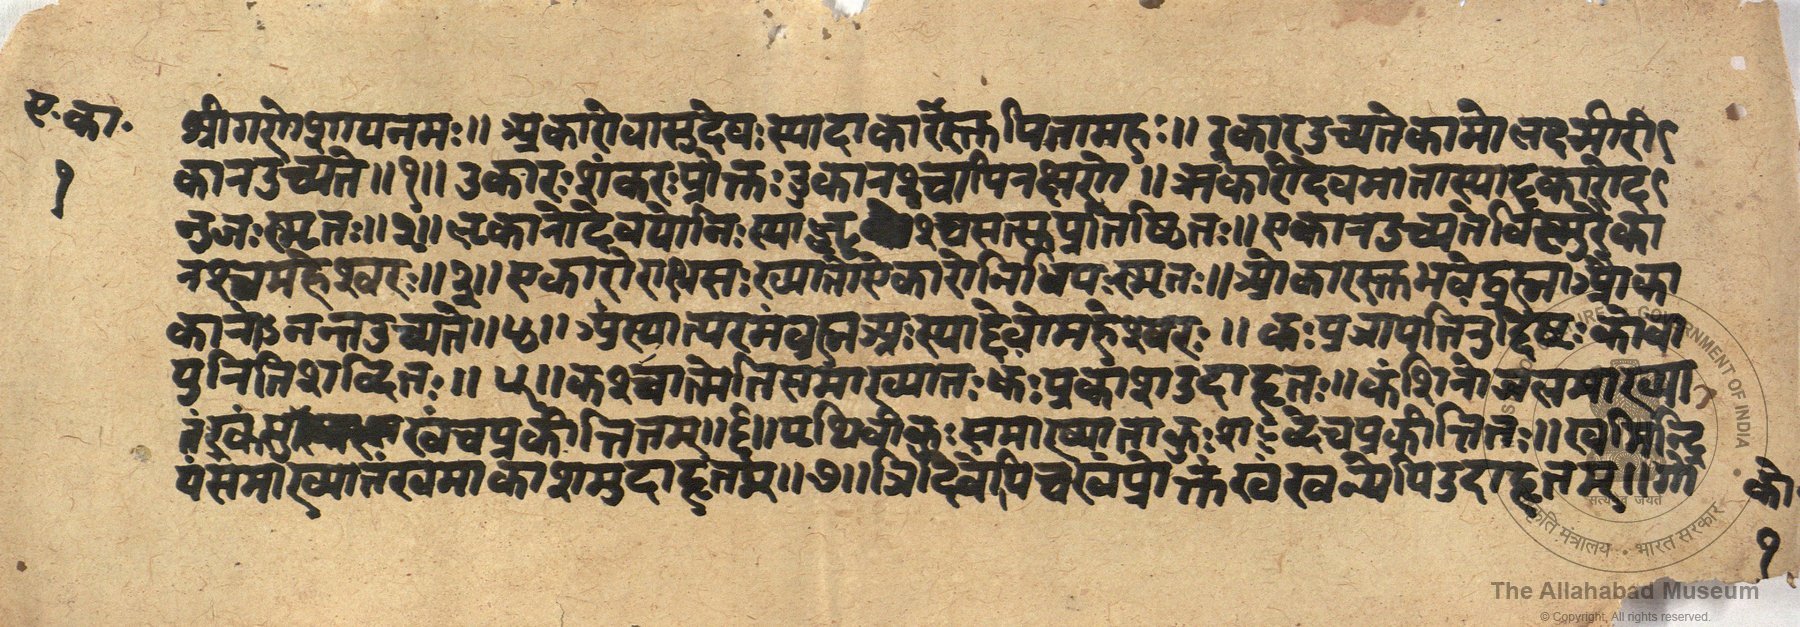 ए. का.
१
श्रीगणेशायनमः॥ अकारोवासुदेवःस्यादाकारस्तुपितामहः॥ इकारउच्यतेकामोलक्ष्मीरी
कारउच्यते॥१॥ उकारःशंकरःप्रोक्तःउकारश्चापिरक्षणे॥ ऋकारोदेवमातास्यादॄकारोद
नुजःस्मृतः॥२॥ लृकारोदेवयोनिःस्या श्चसत्सुप्रतिष्ठितः॥ एकारउच्यतेविष्णुरैका
रश्चमहेश्वरः॥३॥ एकारोराक्षसःख्यातोऐकारोनिधिपःस्मृतः॥ ओकारस्तुभवेद्ब्रह्माऔका
कारोऽनन्तउच्यते॥४॥ अंस्यात्परमंब्रह्मअःस्याद्देवोमहेश्वरः॥ कःप्रजापतिरुद्दिष्टःकोवा
युरितिशब्दितः॥५॥ कश्चात्मेतिसमाख्यातःकःप्रकाशउदाहृतः॥ कंशिरोजलमाख्या
तंकंसु खंचप्रकीर्त्तितम्॥६॥ पृथिवीकुःसमाख्याताकुःशब्देचप्रकीर्त्तितः॥ खमिन्द्रि
यंसमाख्यातंखमाकाशमुदाहृतम्॥७॥ त्रिदिवेपिचखंप्रोक्तंखंखन्येपिउदाहृतम्॥ गो
को.
१
GOVERNMENT OF INDIA
सत्यमेव जयते
संस्कृति मंत्रालय • भारत सरकार
The Allahabad Museum
© Copyright, All rights reserved.